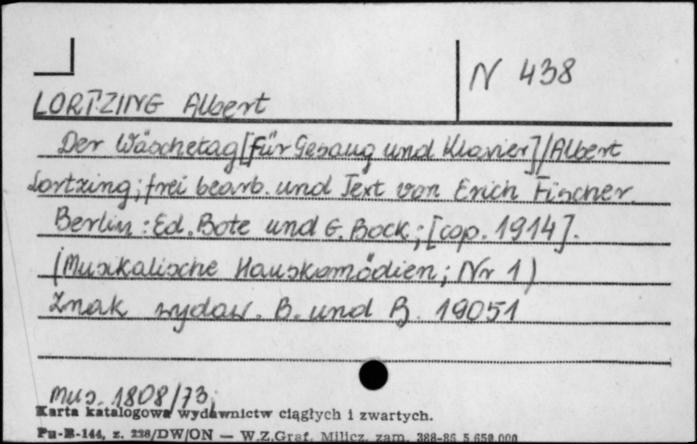 N 438
LORTZING Albert
Der Wäschetag [für Gesang und Klavier] / Albert
Lortzing; frei bearb. und Text von Erich Fischer.
Berlin : Ed. Bote und G. Bock; [cop. 1914].
(Musikalische Hauskomödien; Nr 1)
Znak wydaw. B. und B. 19051
Mus. 1808/73
Karta katalogowa wydawnictw ciągłych i zwartych.
Pu-B-144, z. 238/DW/ON — W.Z.Graf. Milicz, zam. 388-86 5.650.000